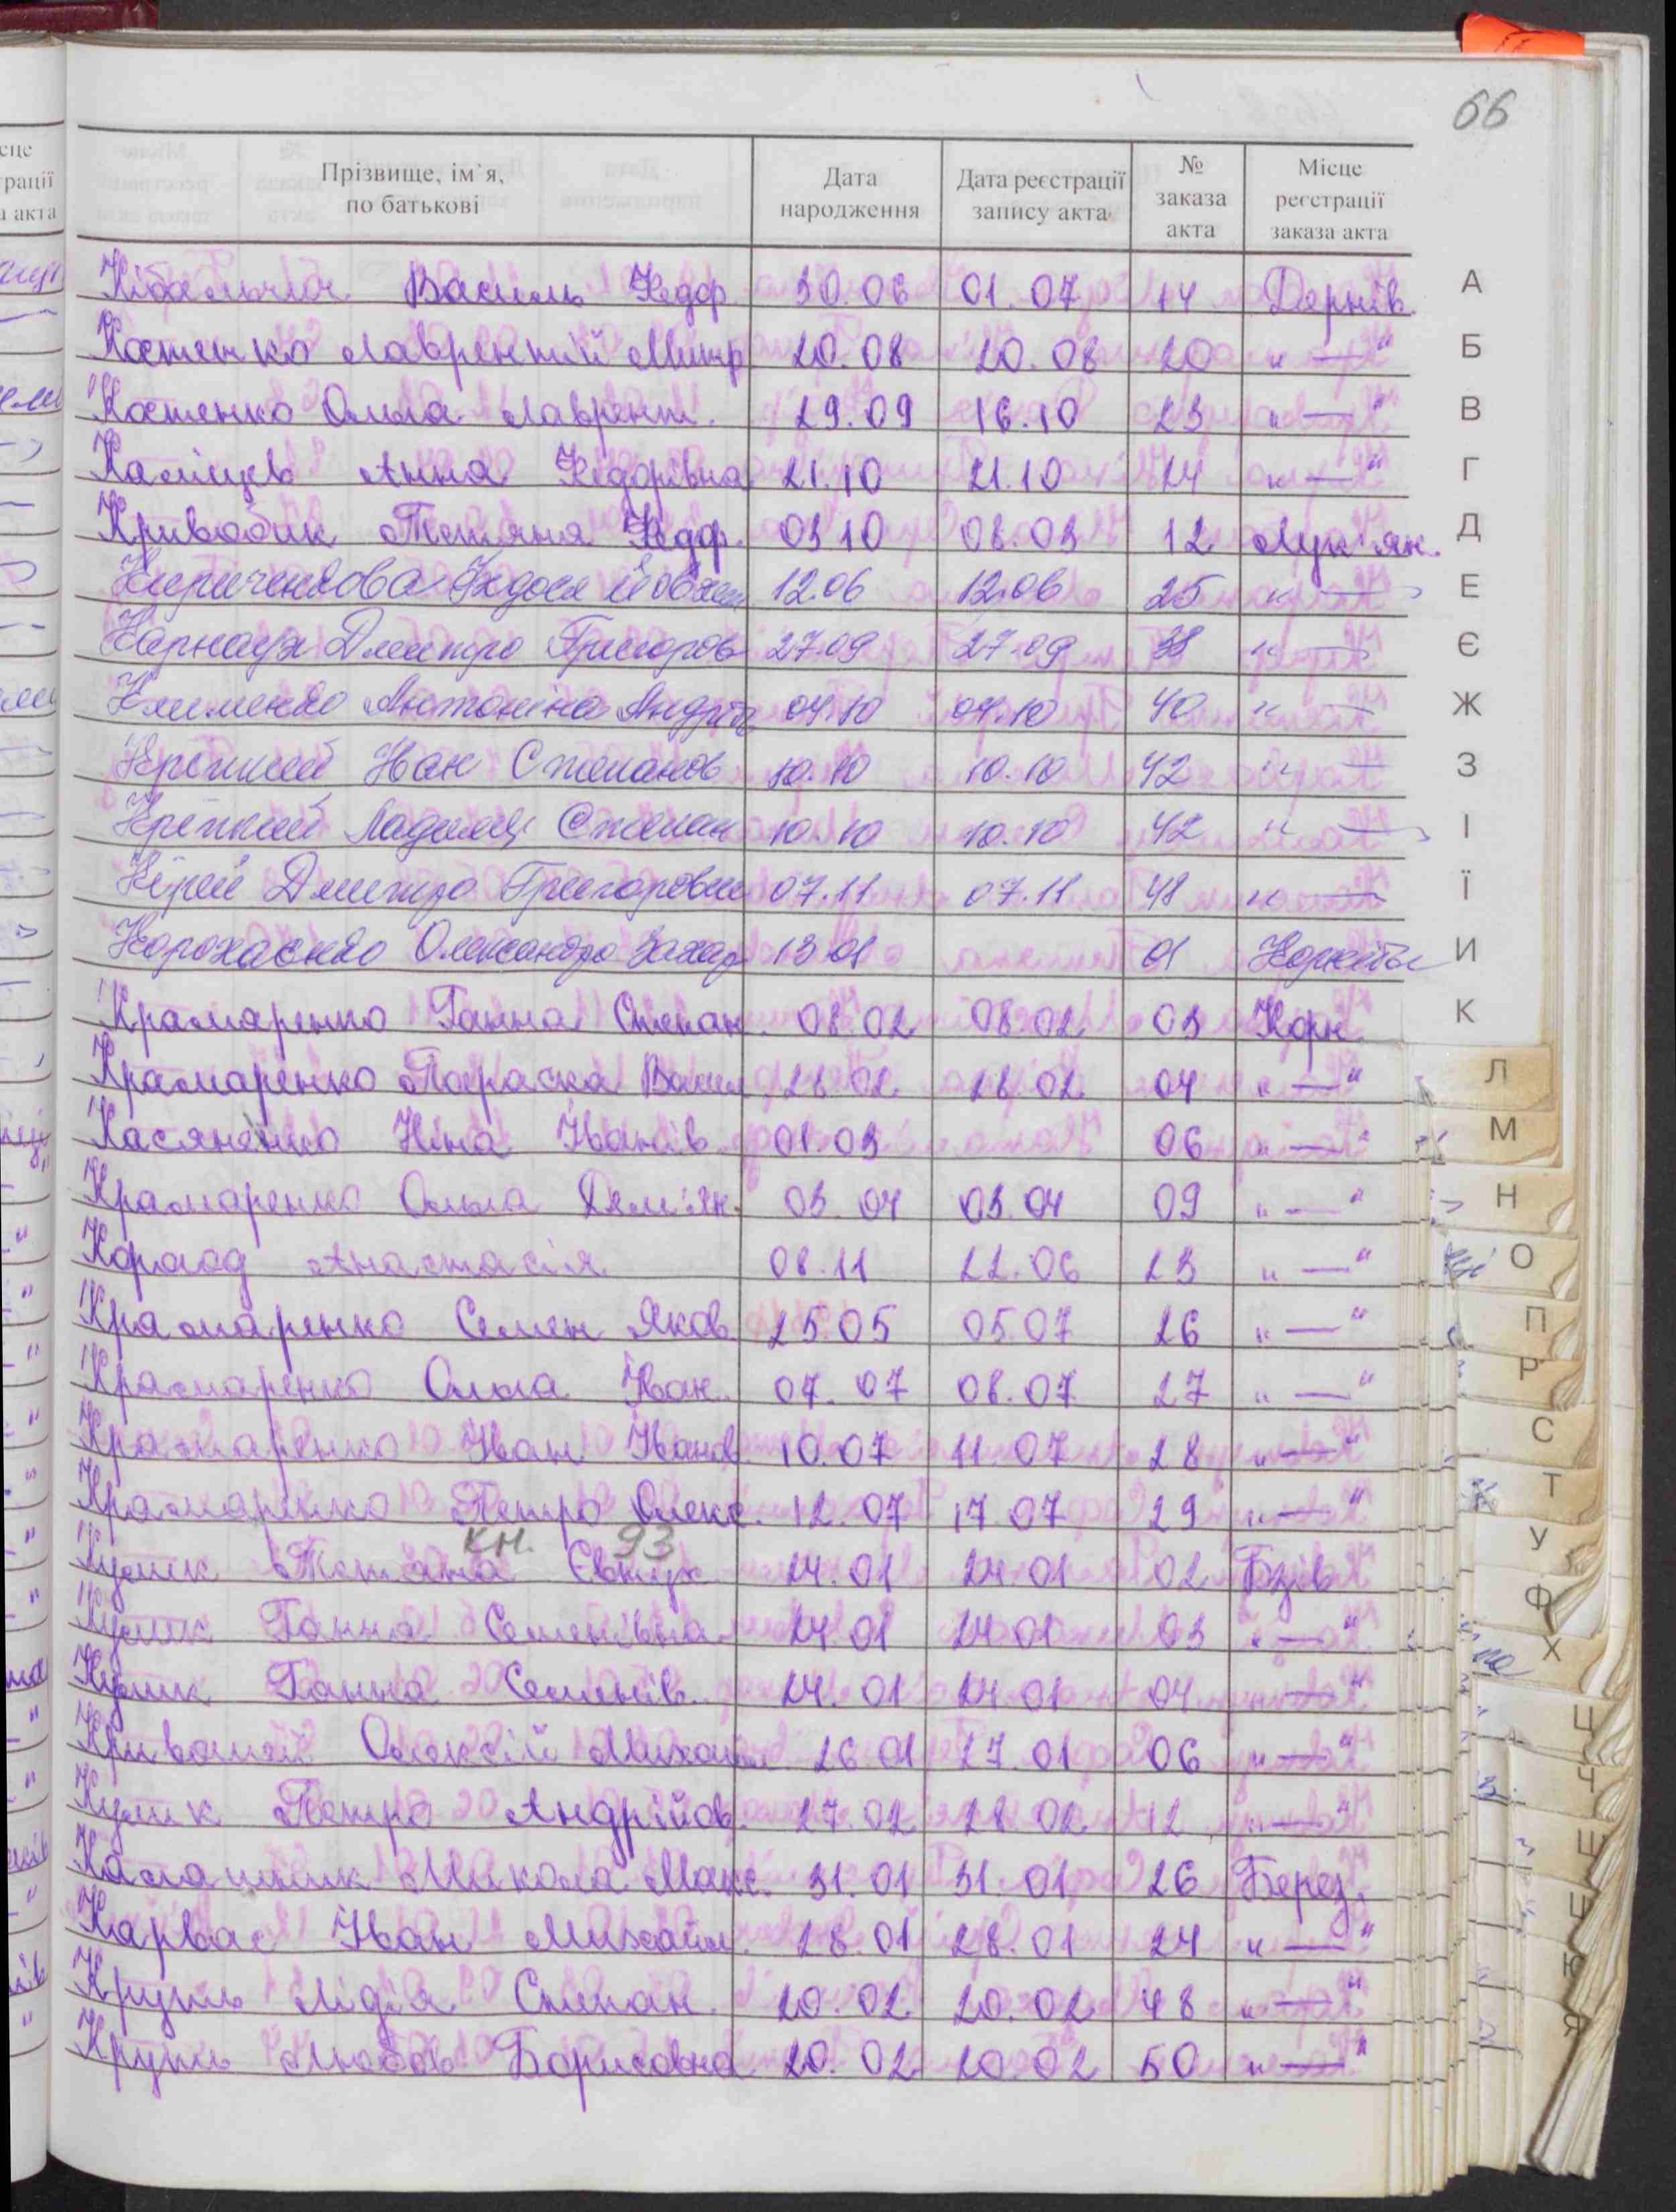 66
Прізвище, ім'я, по батькові | Дата народження | Дата реєстрації запису акта | № заказа акта | Місце реєстрації заказа акта
Кібальчич Василь Федор 30.06 01.07 14 Дернів
Костенко Лаврентій Митр 20.08 20.08 20 "—"
Костенко Ольга Лаврент. 29.09 16.10 23 "—"
Анна Федорівна 21.10 21.10 24 "—"
Кривобик Тетяна Федор. 03.10 08.03 12 Лук'ян.
12.06 12.06 25 "—"
Карнаух Дмитро Григоров 27.09 27.09 38 "—"
Клименко Антоніна Андрії 04.10 04.10 40 "—"
Кріпкий Іван Степанов 10.10 10.10 42 "—"
Кріпкий Степан 10.10 10.10 42 "—"
Кірей Дмитро Григорович 07.11 07.11 48 "—"
Олександра Захар 13.01 01
Крамаренко Ганна Степан. 08.02 08.02 03 Корн.
Крамаренко Параска Васил 28.02 28.02 04 "—"
Касяненко Ніна Іванів 01.03 06 "—"
Крамаренко Ольга Дем'ян. 03.04 03.04 09 "—"
Анастасія 08.11 22.06 23 "—"
Крамаренко Семен Яков 25.05 05.07 26 "—"
Крамаренко Ольга Іван. 07.07 08.07 27 "—"
Крамаренко Іван Іванов 10.07 11.07 28 "—"
Крамаренко Петро Олекс. 12.07 17.07 29 "—"
кн. 93
Кулик Тетяна Євтух 24.01 24.01 02 Бзів
Кулик Ганна Семенівна 24.01 24.01 03 "—"
Кулик Ганна Семенів 24.01 24.01 04 "—"
Олексій Михайл 26.01 27.01 06 "—"
Кулик Петро Андрійов. 27.02 28.02 12 "—"
Микола Макс. 31.01 31.01 26 Берез.
Карвас Іван Михайл. 28.01 28.01 24 "—"
Круть Лідія Степан. 20.02 20.02 48 "—"
Круть Любов Борисовна 20.02 20.02 50 "—"
А
Б
В
Г
Д
Е
Є
Ж
З
І
Ї
И
К
Л
М
Н
О
П
Р
С
Т
У
Ф
Х
Ц
Ч
Ш
Щ
Ю
Я